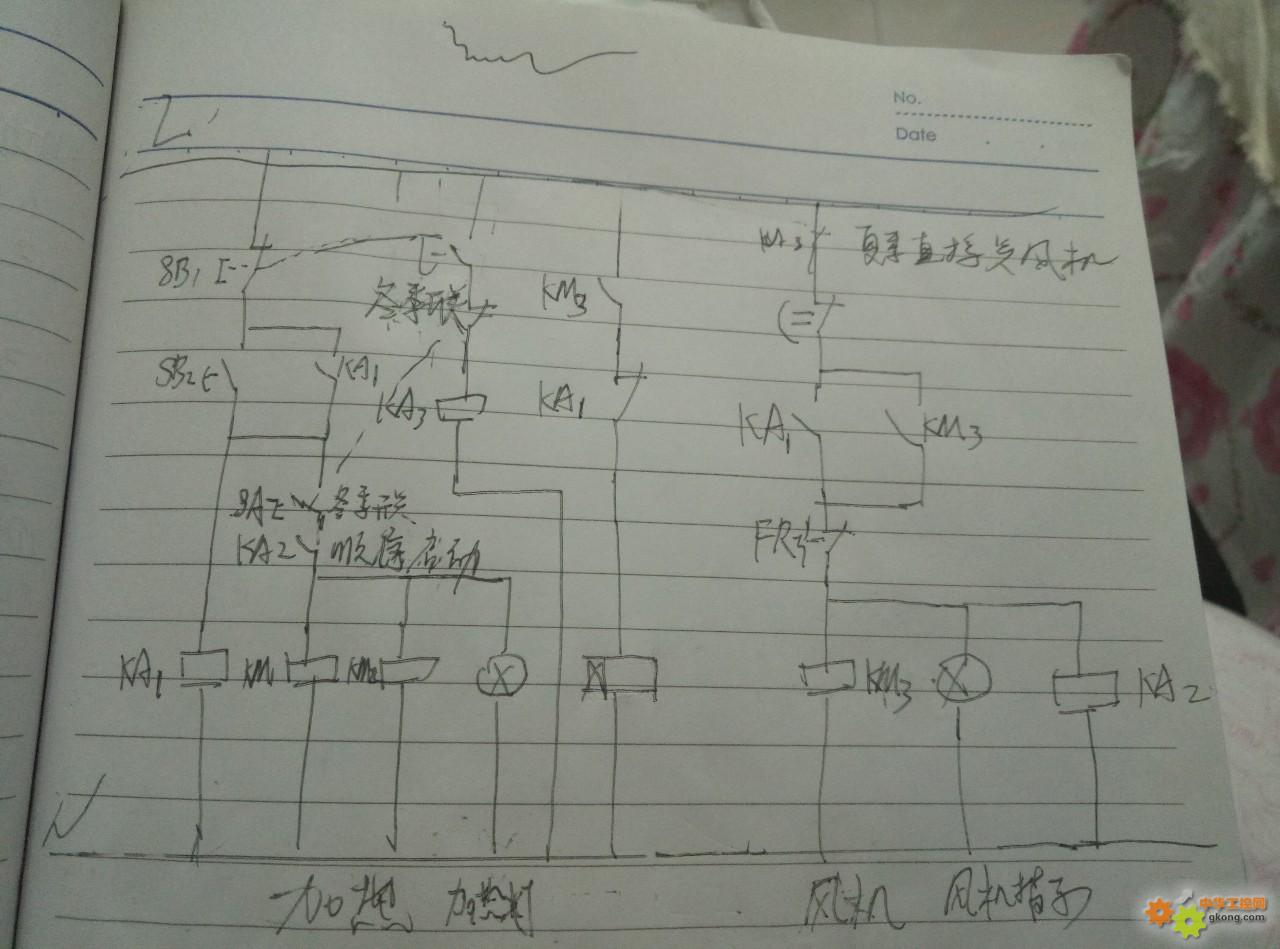 No.
Date
L
KA3 夏季直接关风机
SB1
冬季联
KM3
SB2
KA1
KA3
KA1
KA1
KM3
SA
冬季联
KA2 顺序启动
FR3
KA1
KM1
KM2
KM3
KA2
N
加热
加热灯
风机
风机指示
中华工控网
gkong.com